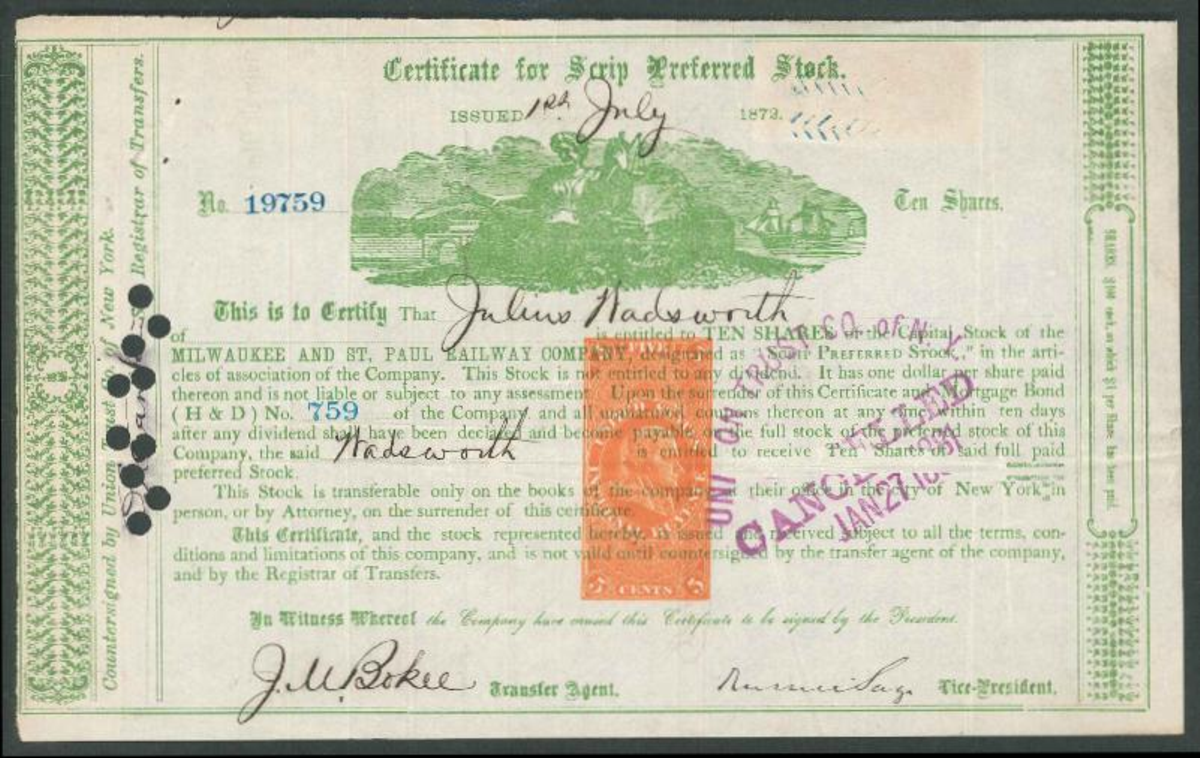 Certificate for Scrip Preferred Stock.
ISSUED 1st July 1873.
No. 19759
Ten Shares.
This is to Certify That Julius Wadsworth
of is entitled to TEN SHARES of the Capital Stock of the
MILWAUKEE AND ST. PAUL RAILWAY COMPANY, designated as "SCRIP PREFERRED STOCK," in the arti-
cles of association of the Company. This Stock is not entitled to any dividend. It has one dollar per share paid
thereon and is not liable or subject to any assessment. Upon the surrender of this Certificate and Mortgage Bond
(H & D) No. 759 of the Company and all unmatured coupons thereon at any time within ten days
after any dividend shall have been declared and become payable on the full stock of the preferred stock of this
Company, the said Wadsworth is entitled to receive Ten Shares of said full paid
preferred Stock.
This Stock is transferable only on the books of the company at their office in the city of New York in
person, or by Attorney, on the surrender of this certificate.
This Certificate, and the stock represented hereby, is issued and received subject to all the terms, con-
ditions and limitations of this company, and is not valid until countersigned by the transfer agent of the company,
and by the Registrar of Transfers.
In Witness Whereof the Company have caused this Certificate to be signed by the President.
J.M. Bokee Transfer Agent.
Russell Sage Vice-President.
Countersigned by Union of New York.
Registrar of Transfers.
SHARES $100 each, on which $1 per Share has been paid.
FIVE
5 CENTS 5
TRUST CO. OF N.Y.
CANCELLED
JAN 27